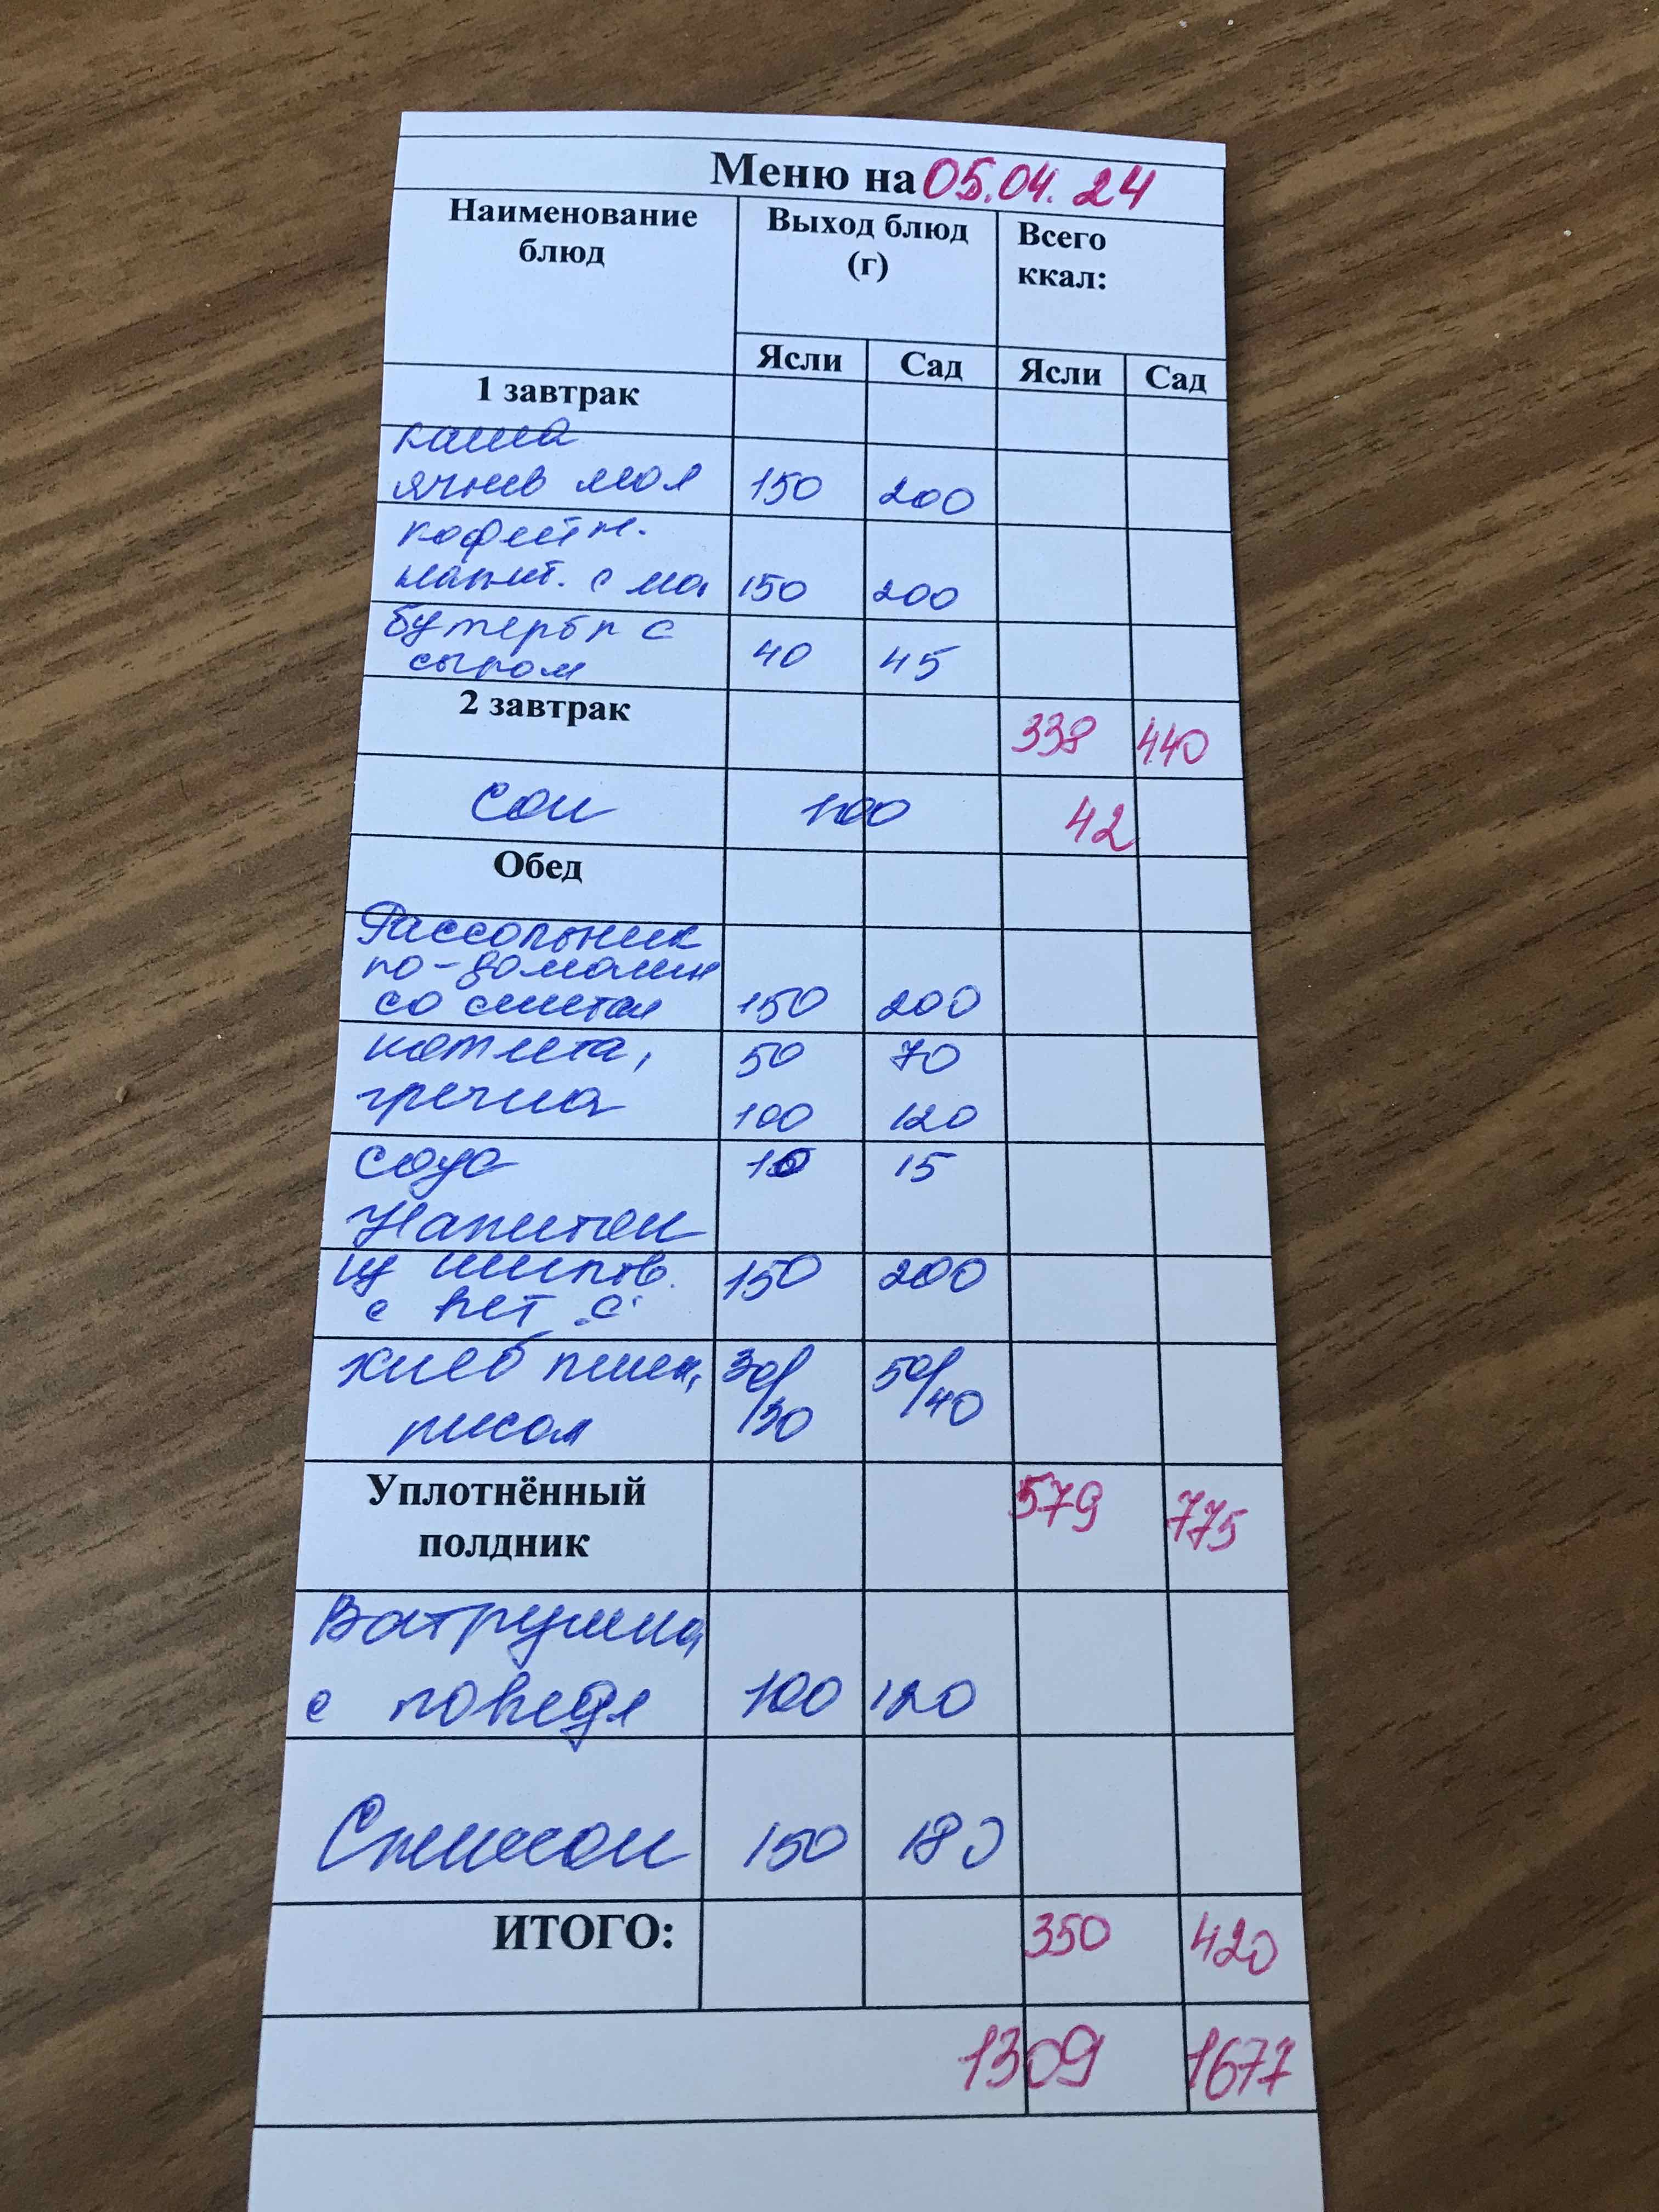 Меню на 05.04.24
Наименование блюд Выход блюд (г) Всего ккал:
Ясли Сад Ясли Сад
1 завтрак
каша
ячнев мол 150 200
кофейн.
напит. с мол 150 200
бутербр с
сыром 40 45
2 завтрак 338 440
Сок 100 42
Обед
Рассольник
по-домашн
со сметан 150 200
котлета, 50 70
гречка 100 120
соус 10 15
Напиток
из шипов. 150 200
с вет с.
хлеб пшен, 30/ 50/
ржаной /30 /40
Уплотнённый 579 775
полдник
Ватрушка
с повидл 100 120
Снежок 150 180
ИТОГО: 350 420
1309 1677